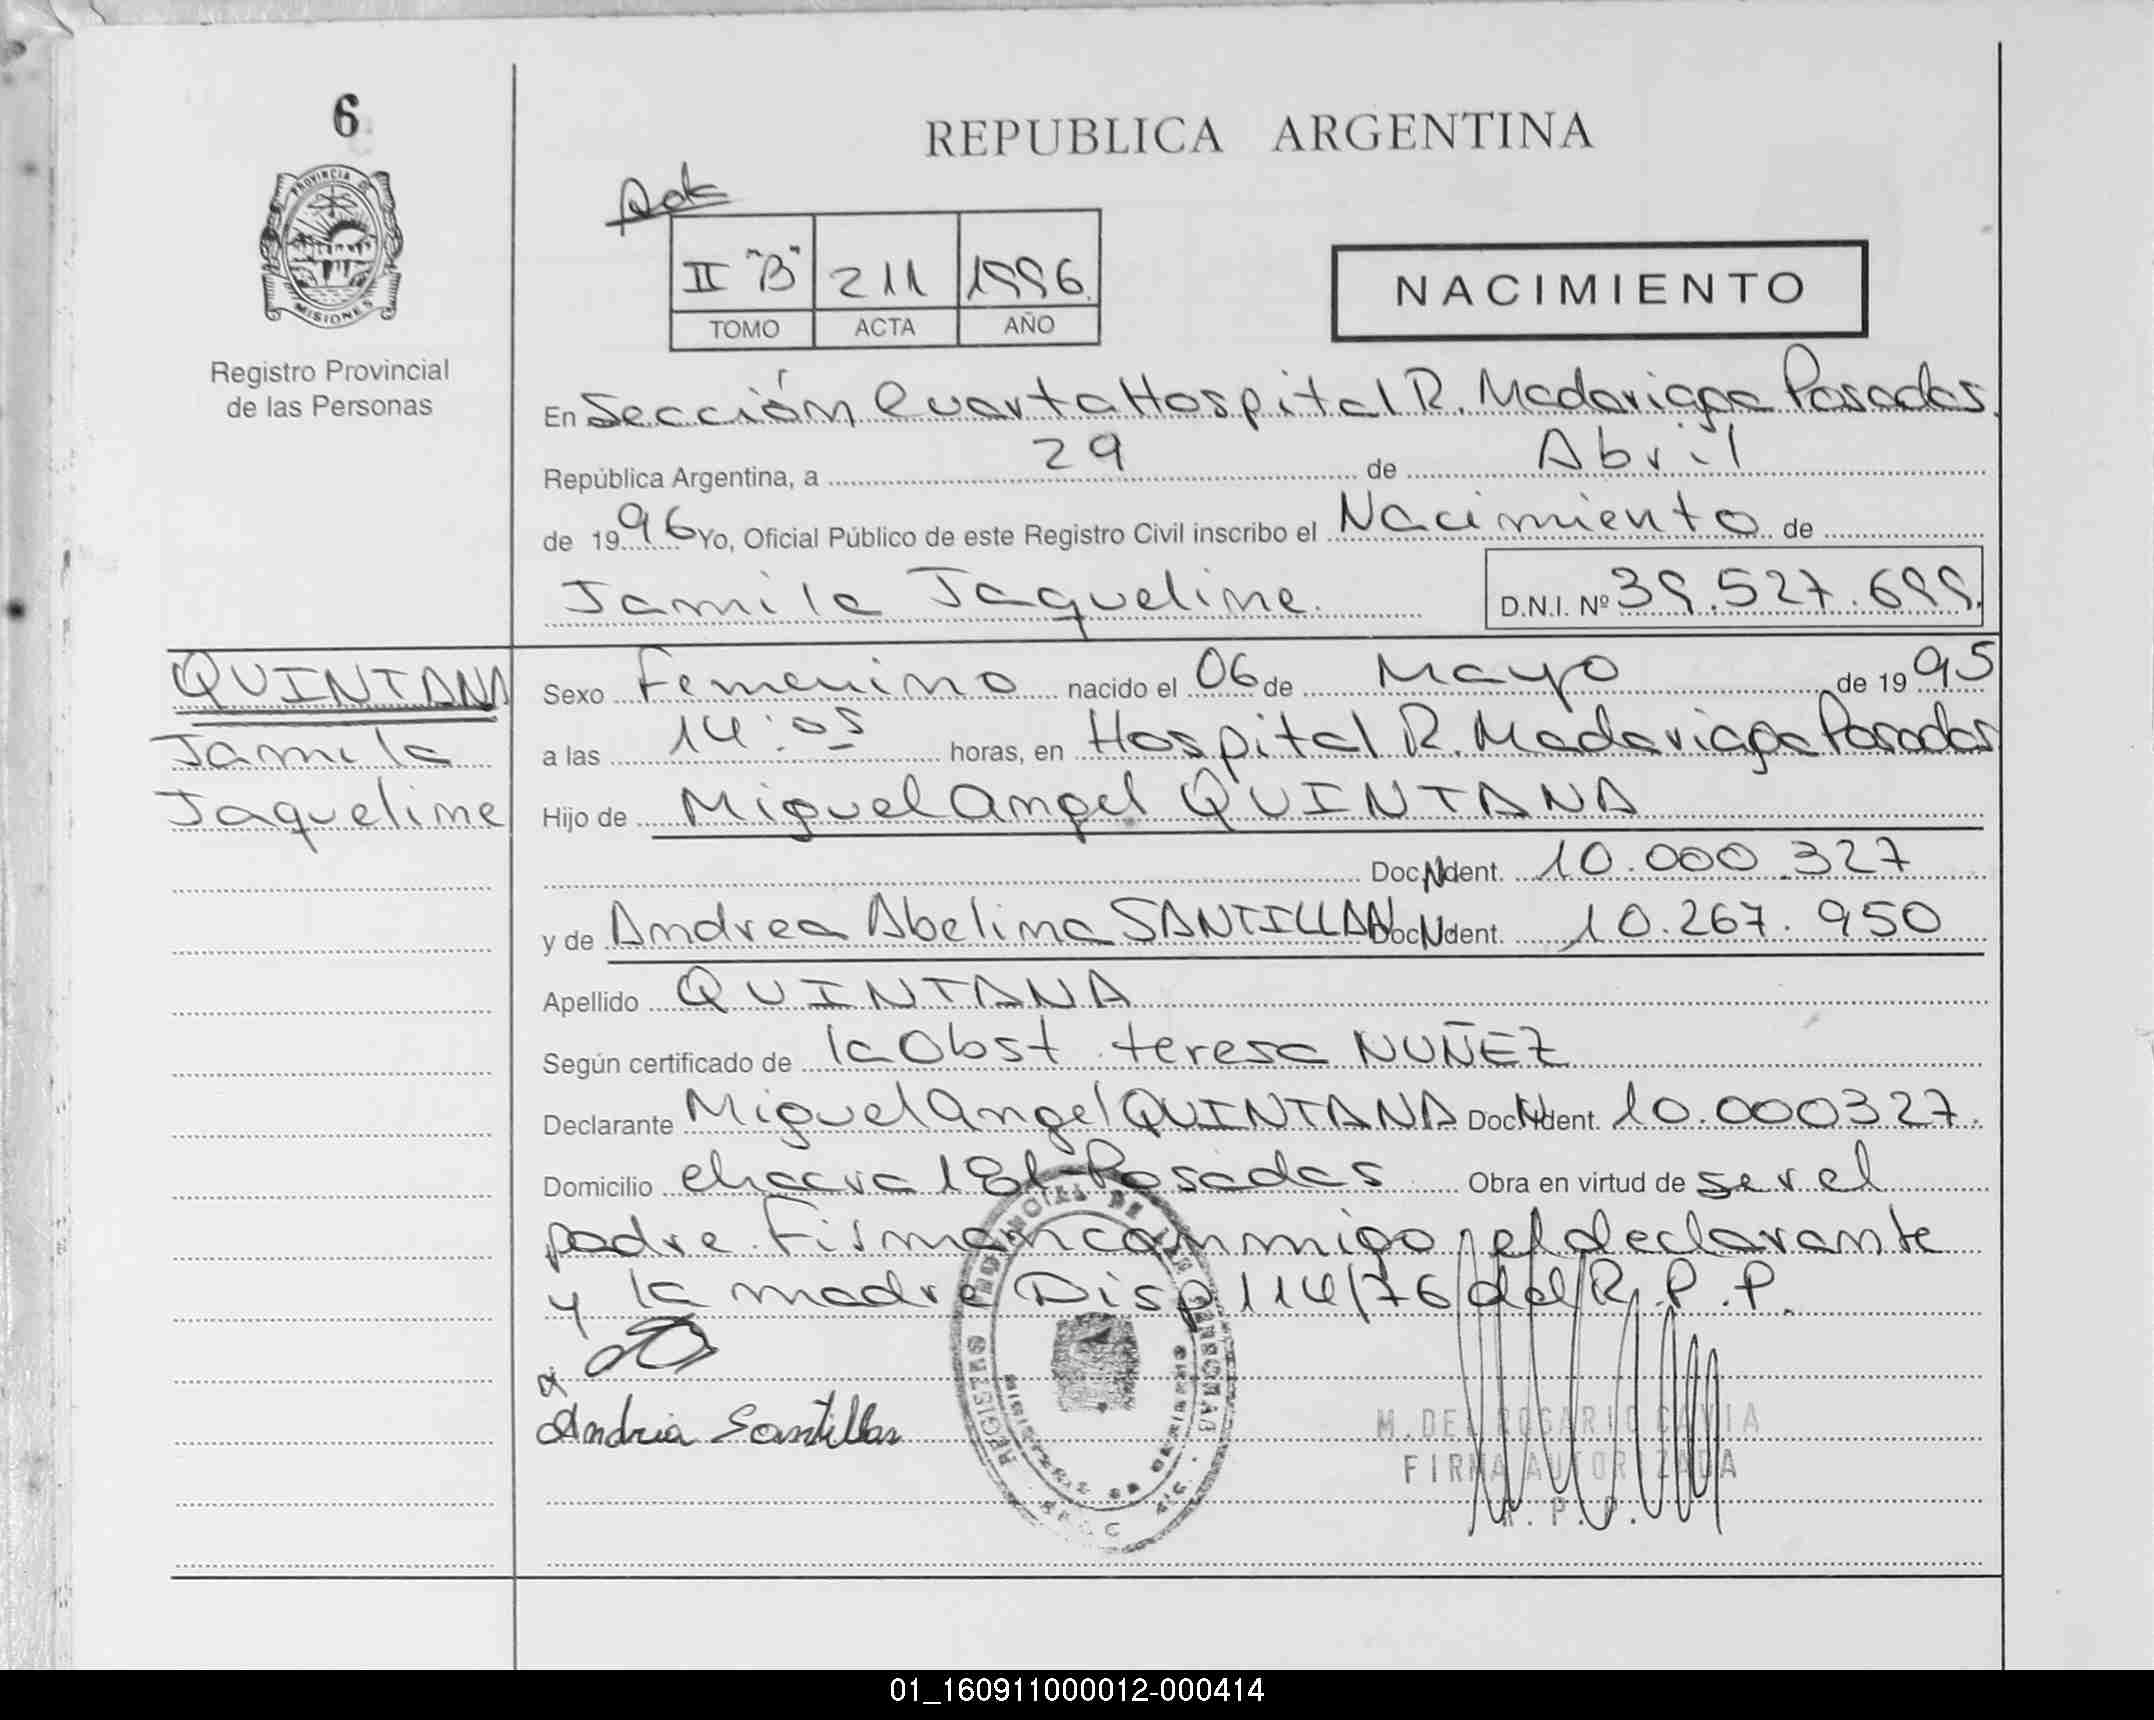 6
REPUBLICA ARGENTINA
PROVINCIA DE
MISIONES
Registro Provincial
de las Personas
II "B" 211 1996.
TOMO ACTA AÑO
NACIMIENTO
En Sección Cuarta Hospital R. Madariaga Posadas.
República Argentina, a 29 de Abril
de 1996 Yo, Oficial Público de este Registro Civil inscribo el Nacimiento de
Jamila Jaqueline. D.N.I. Nº 39.527.699.
QUINTANA
Jamila
Jaqueline
Sexo Femenino nacido el 06 de Mayo de 1995
a las 14:05 horas, en Hospital R. Madariaga Posadas
Hijo de Miguel Angel QUINTANA
Doc. Ident. 10.000.327
y de Andrea Abelina SANTILLAN Doc. Ident. 10.267.950
Apellido QUINTANA
Según certificado de la Obst. teresa NUÑEZ
Declarante Miguel Angel QUINTANA Doc. Ident. 10.000327.
Domicilio chacra 181 - Posadas Obra en virtud de ser el
padre. Firman conmigo, el declarante
y la madre Disp 114/76 del R.P.P.
Andria Santillan
M. DEL ROSARIO CAVIA
FIRMA AUTORIZADA
R.P.P.
01_160911000012-000414